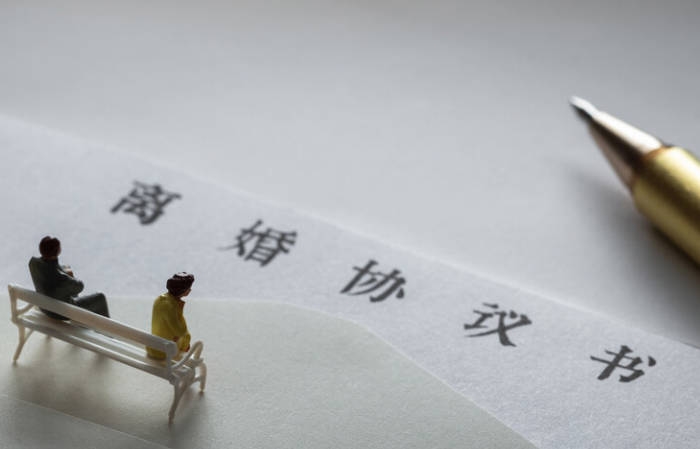 离婚协议书